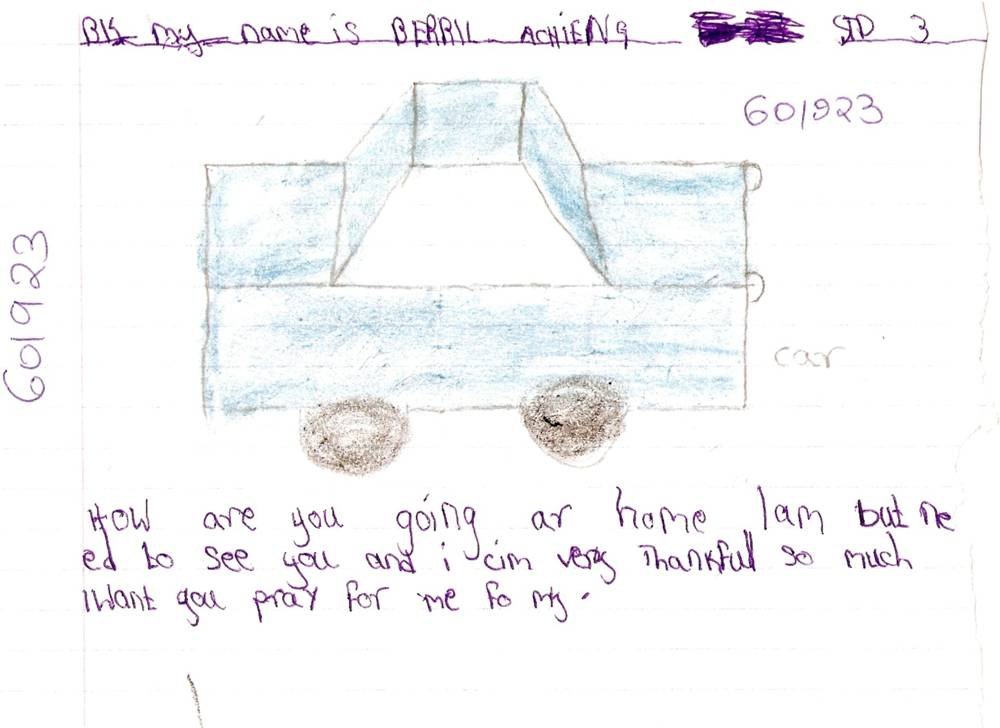 my name is BERRIL ACHIENG STD 3
601923
601923
car
How are you going ar home Iam but ne
ed to see you and i cim very Thankful so much
iwant you pray for me fo my.